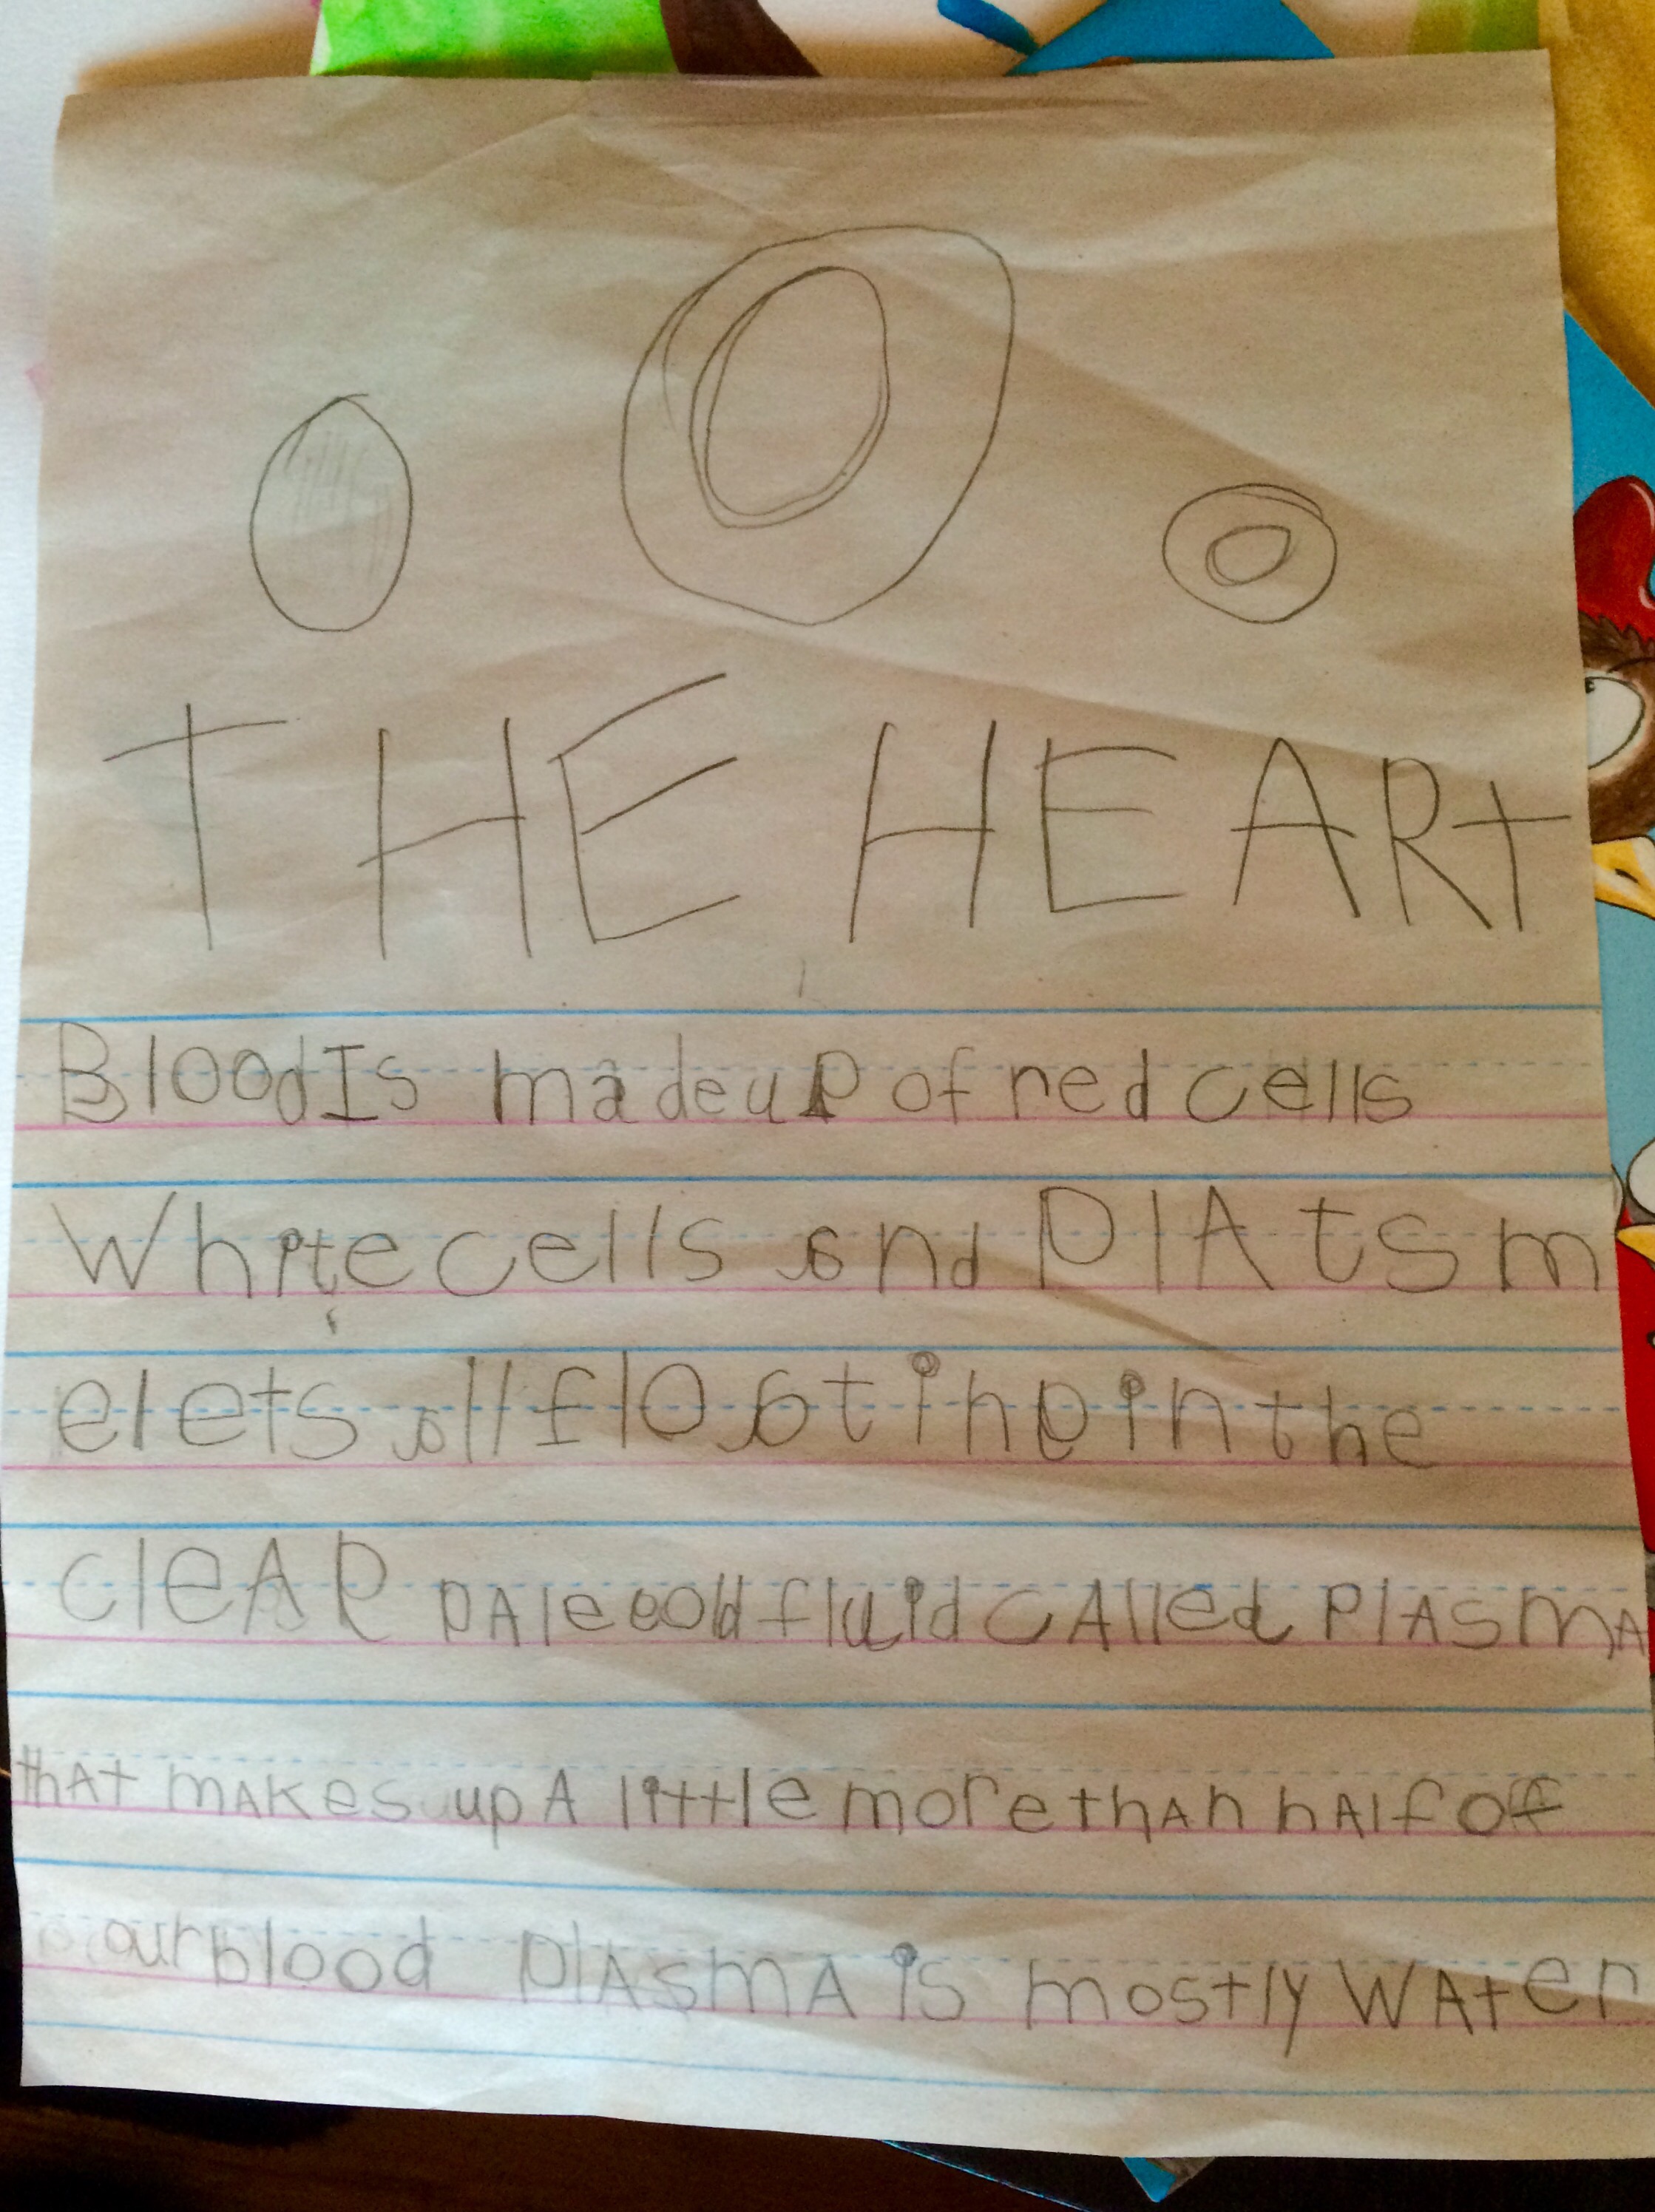 THE HEARt
BloodIs madeup of red cells
Whitecells and PlAtsm
elets all floating in the
cleAR pAle gold fluid cAlled PlAsmA
thAt mAkes up A little more thAn hAlf of
our blood PlAsmA is mostly WAter